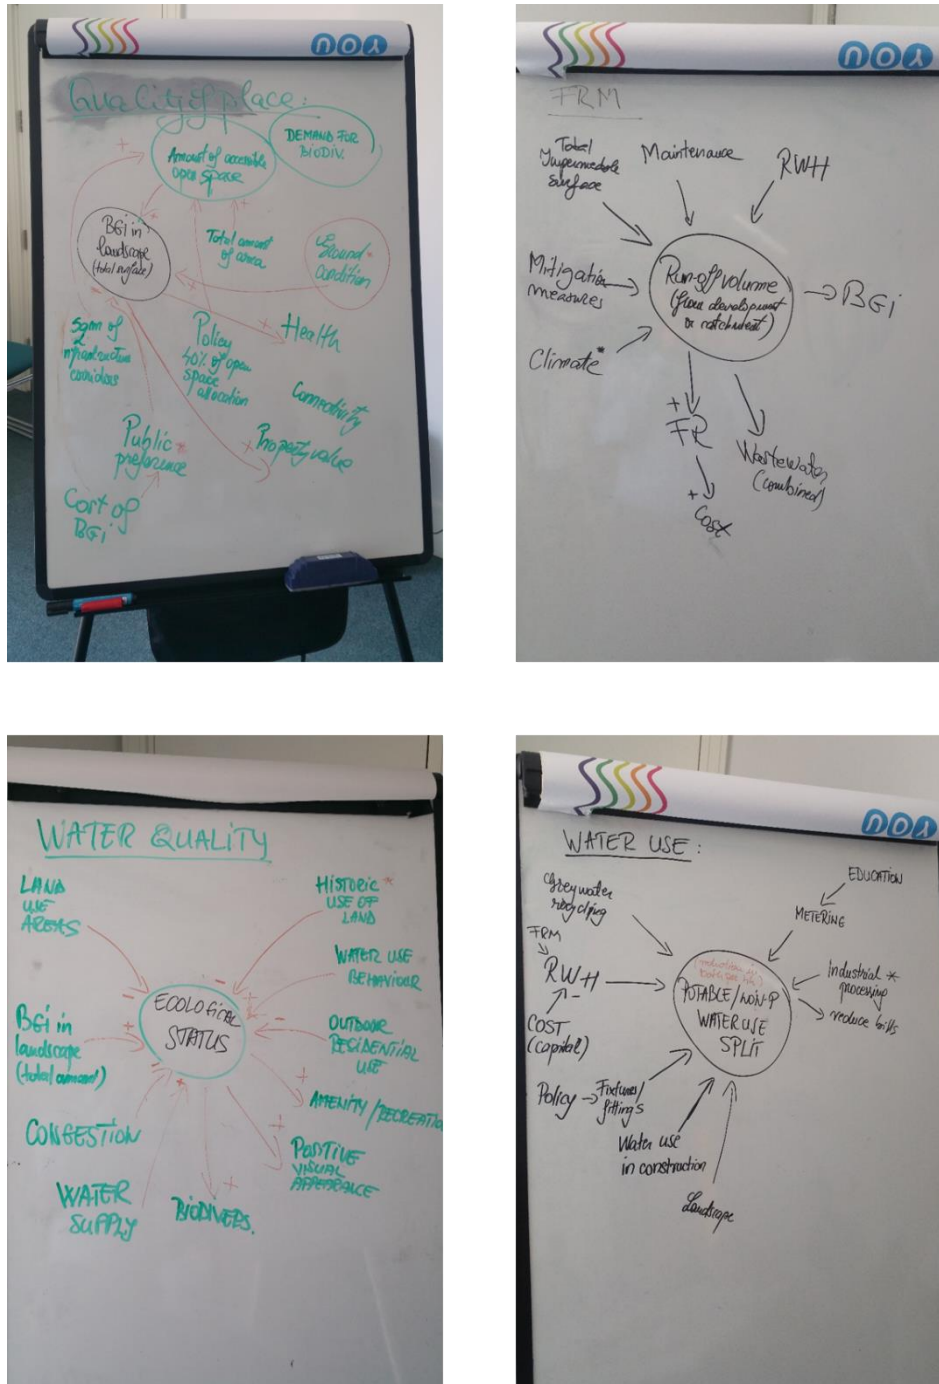 Quality of place:
Amount of accessible
open space
DEMAND FOR
BioDiv.
BGi in
landscape
(total surface)
Total amount
of area
Ground *
condition
Sqm of
infrastructure
corridors
Policy
40% of open
space
allocation
Health
Connectivity
Public *
preference
Property value
Cost of
BGi
FRM
Total
Impermeable
surface
Maintenance
RWH
Mitigation
measures
Run-off volume
(from development
or catchment)
BGi
Climate *
+
FR
+
Cost
Wastewater
(combined)
WATER QUALITY
LAND
USE
AREAS
HISTORIC *
USE OF
LAND
WATER USE
BEHAVIOUR
ECOLOGICAL
STATUS
BGi in
landscape
(total amount)
OUTDOOR
RESIDENTIAL
USE
AMENITY/RECREATION
CONGESTION
POSITIVE
VISUAL
APPEARANCE
WATER
SUPPLY
BIODIVERS.
WATER USE:
EDUCATION
Greywater
recycling
METERING
FRM
RWH
POTABLE/NON-P
WATER USE
SPLIT
Industrial *
processing
reduce bills
COST
(capital)
Policy
Fixtures/
fittings
Water use
in construction
Landscape